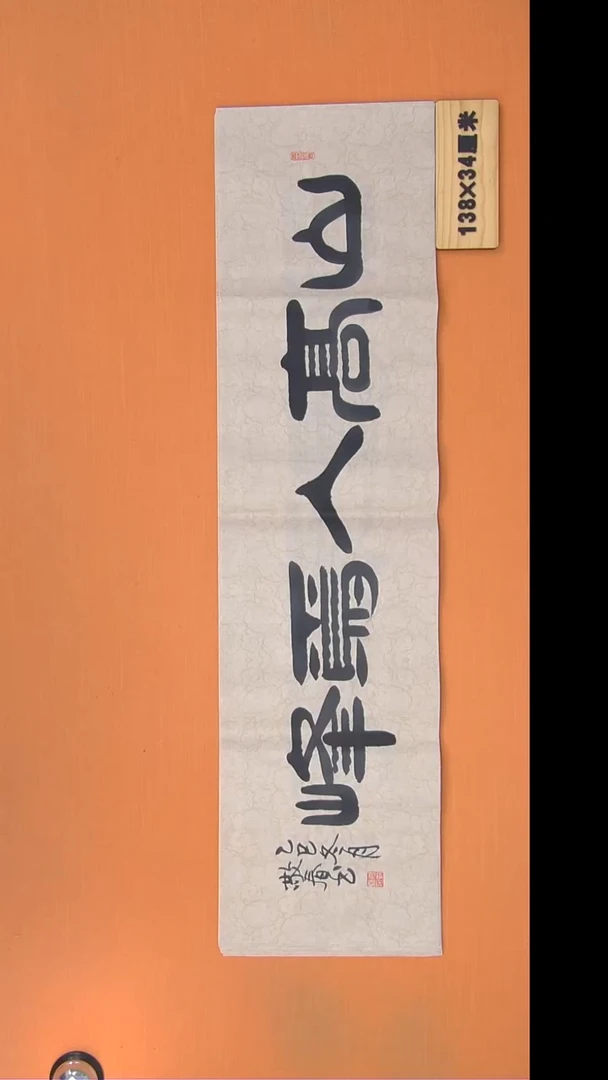 山高人爲峰
乙巳冬月
敬书
138×34厘米